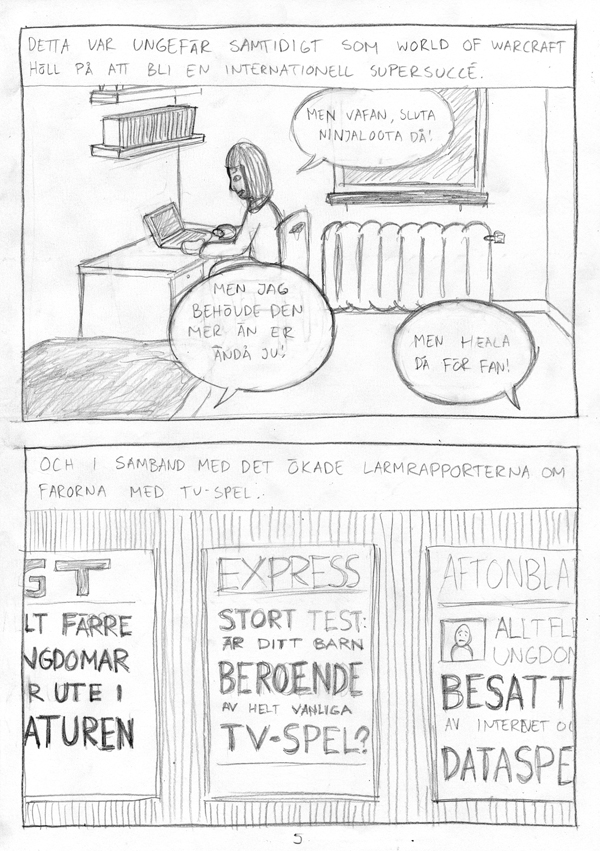 DETTA VAR UNGEFÄR SAMTIDIGT SOM WORLD OF WARCRAFT
HÖLL PÅ ATT BLI EN INTERNATIONELL SUPERSUCCÉ.
MEN VAFAN, SLUTA
NINJALOOTA DÅ!
MEN JAG
BEHÖVDE DEN
MER ÄN ER
ÄNDÅ JU!
MEN HEALA
DÅ FÖR FAN!
OCH I SAMBAND MED DET ÖKADE LARMRAPPORTERNA OM
FARORNA MED TV-SPEL.
GT
LT FÄRRE
NGDOMAR
R UTE I
ATUREN
EXPRESS
STORT TEST:
ÄR DITT BARN
BEROENDE
AV HELT VANLIGA
TV-SPEL?
AFTONBLA
ALLT FLE
UNGDOM
BESATT
AV INTERNET OC
DATASPE
5